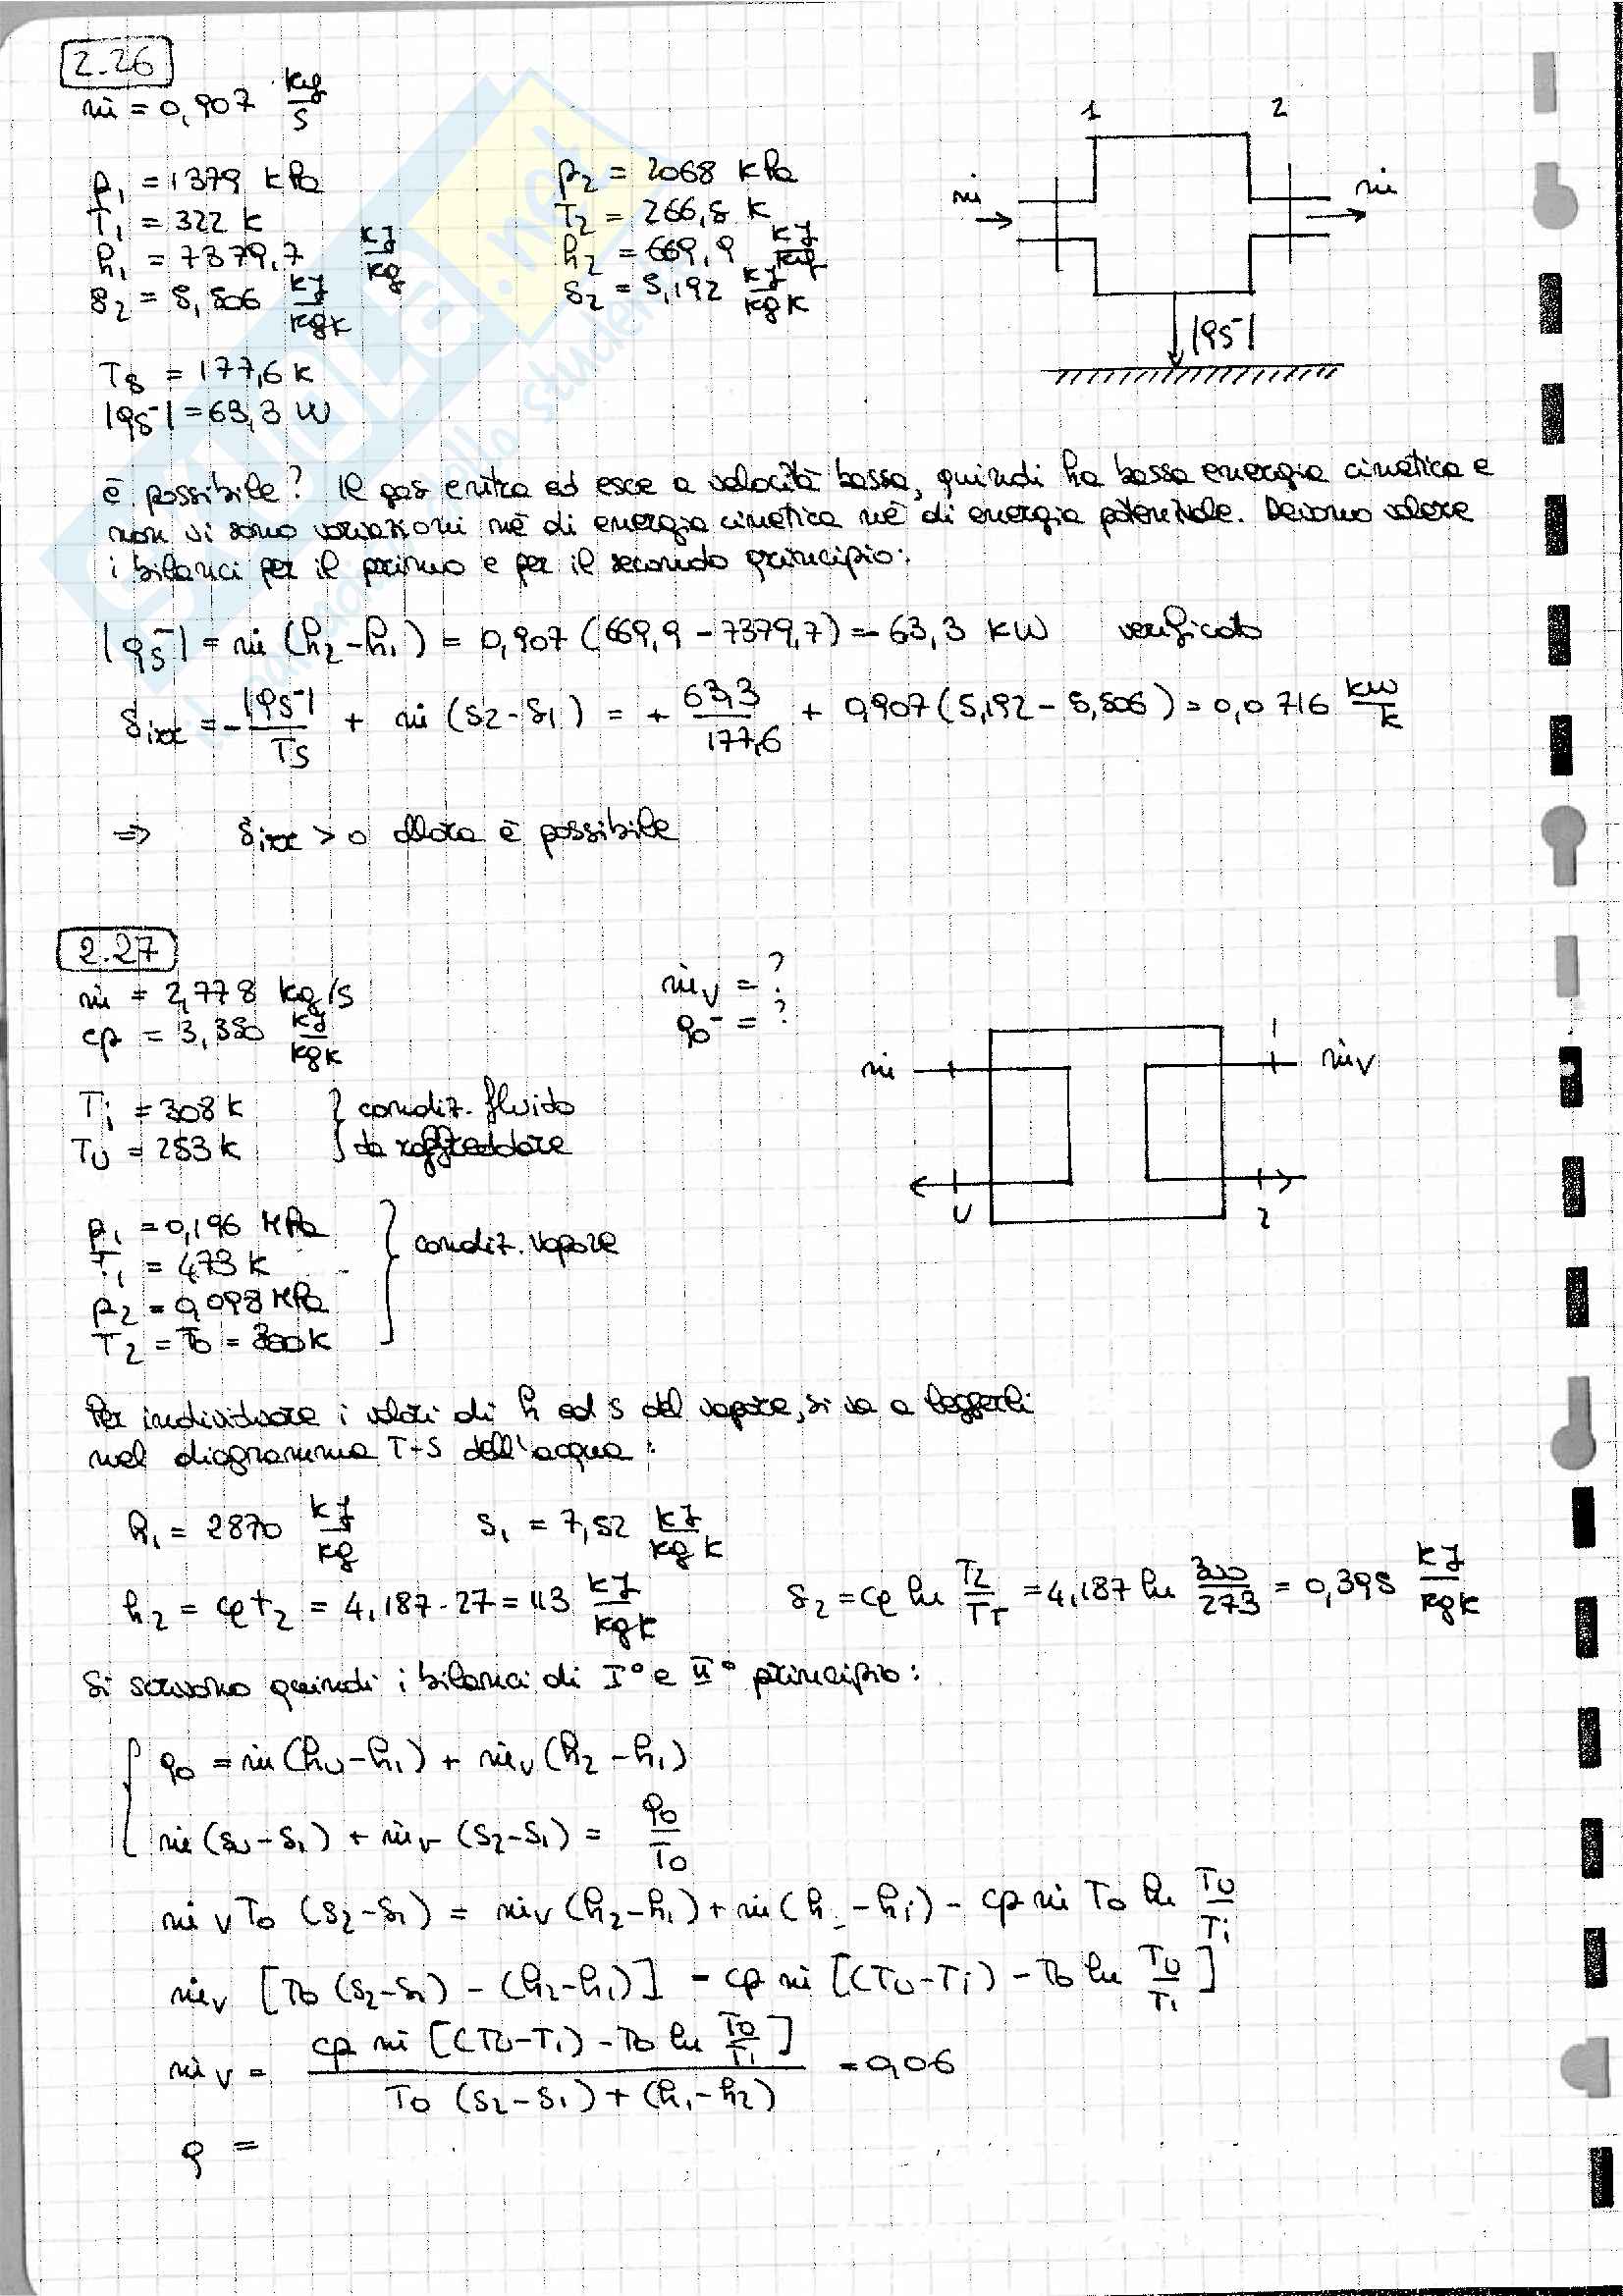 2.26
ṁ = 0,907 kg/s
p₁ = 1379 kPa
T₁ = 322 K
h₁ = 7379,7 kJ/kg
s₂ = 5,506 kJ/kgK
p₂ = 2068 kPa
T₂ = 266,5 K
h₂ = 669,9 kJ/kg
s₂ = 5,192 kJ/kgK
1 2
ṁ ṁ
|qs⁻|
Ts = 177,6 K
|qs⁻| = 63,3 W
è possibile? Il gas entra ed esce a velocità bassa, quindi ha bassa energia cinetica e
non vi sono variazioni né di energia cinetica né di energia potenziale. Devono valere
i bilanci per il primo e per il secondo principio:
|qs⁻| = ṁ (h₂-h₁) = 0,907 (669,9 - 7379,7) = - 63,3 kW verificato
sirr = - |qs⁻|/Ts + ṁ (s₂-s₁) = + 63,3/177,6 + 0,907 (5,192 - 5,506) = 0,0716 kW/K
⇒ sirr > 0 allora è possibile
2.27
ṁ = 2,778 kg/s
cp = 3,350 kJ/kgK
ṁv = ?
q₀⁻ = ?
Ti = 308 K } condiz. fluido
TU = 253 K } da raffreddare
ṁ 1 ṁv
U 2
p₁ = 0,196 MPa
T₁ = 473 K
p₂ = 0,098 MPa
T₂ = T₀ = 300 K
} condiz. vapore
Per individuare i valori di h ed s del vapore, si va a leggerli
nel diagramma T-S dell'acqua:
h₁ = 2870 kJ/kg s₁ = 7,52 kJ/kgK
h₂ = cp t₂ = 4,187·27 = 113 kJ/kgK s₂ = cp ln T₂/Tr = 4,187 ln 300/273 = 0,395 kJ/kgK
Si scrivono quindi i bilanci di I° e II° principio:
{ q₀ = ṁ (hU-hi) + ṁv (h₂-h₁)
ṁ (sU-si) + ṁv (s₂-s₁) = q₀/T₀
ṁv T₀ (s₂-s₁) = ṁv (h₂-h₁) + ṁ (h -hi) - cp ṁ T₀ ln TU/Ti
ṁv [T₀ (s₂-s₁) - (h₂-h₁)] = cp ṁ [(TU-Ti) - T₀ ln TU/Ti]
ṁv = cp ṁ [(TU-Ti) - T₀ ln TU/Ti] / T₀ (s₂-s₁) + (h₁-h₂) = 0,06
q =